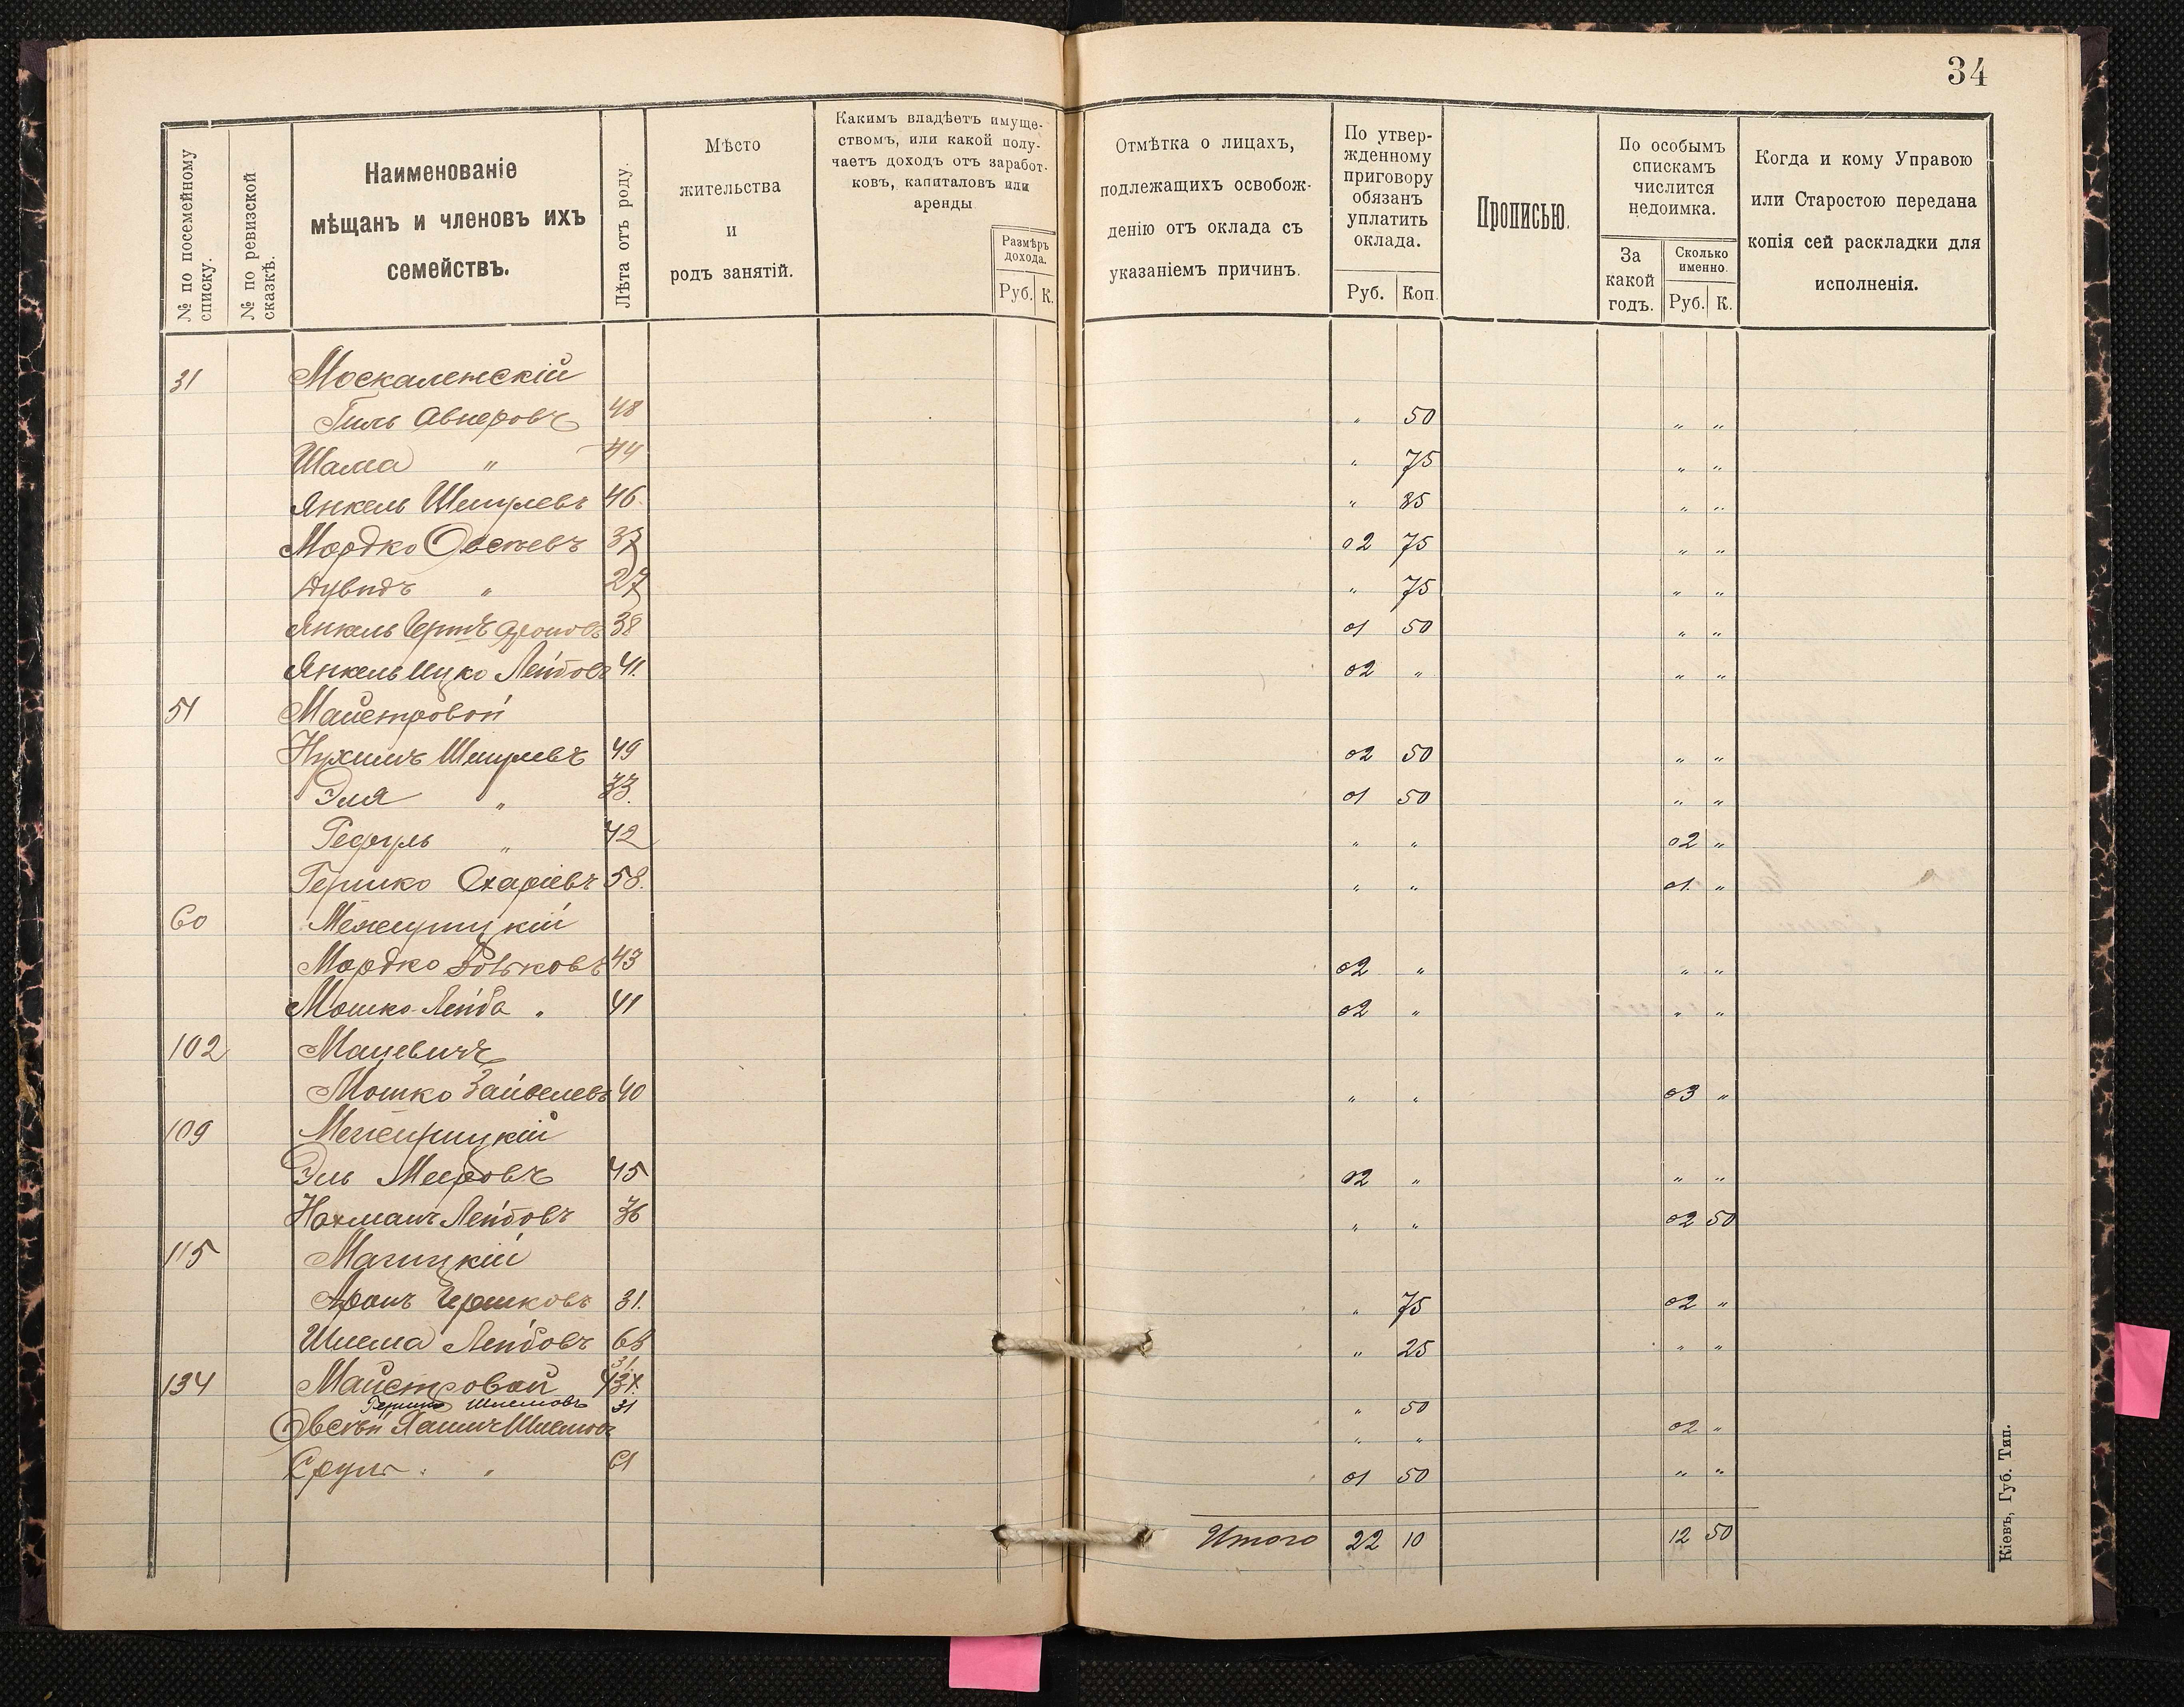 34
№ по посемейному списку.
№ по ревизской сказкѣ.
Наименованіе
мѣщанъ и членовъ ихъ
семействъ.
Лѣта отъ роду.
Мѣсто
жительства
и
родъ занятій.
Какимъ владѣетъ имуще-
ствомъ, или какой полу-
чаетъ доходъ отъ заработ-
ковъ, капиталовъ или
аренды
Размѣръ
дохода.
Руб. К.
Отмѣтка о лицахъ,
подлежащихъ освобож-
денію отъ оклада съ
указаніемъ причинъ.
По утвер-
жденному
приговору
обязанъ
уплатить
оклада.
Руб. Коп.
Прописью.
По особымъ
спискамъ
числится
недоимка.
За
какой
годъ.
Сколько
именно.
Руб. К.
Когда и кому Управою
или Старостою передана
копія сей раскладки для
исполненія.
31 Москаленскій
Гиль Авнеровъ 48 " 50 " "
Шама " 44 " 75 " "
Янкель Шмулевъ 46 " 85 " "
Мордко Овсѣевъ 37 02 75 " "
Дувидъ " 27 " 75 " "
Янкель Герш 38 01 50 " "
Янкель Ицко Лейбовъ 41. 02 " " "
51 Майстровой
Нухимъ Шмулевъ 49 02 50 " "
Эля " 33. 01 50 " "
" 42 " " 02 "
Гершко 58. " " 01. "
60 Межерицкій
Мордко 43 02 " " "
Мошко-Лейба " 41 02 " " "
102 Мацевичъ
Мошко Зайвелевъ 40 " " 03 "
109 Межерицкій
Эль Мееровъ 45 02 " " "
Нахманъ Лейбовъ 36 " " 02 50
115 Магицкій
Аронъ Гершковъ 31. " 75 02 "
Шлема Лейбовъ " 25 " "
134 Майстровой
Гершко Шлемовъ 31 " 50
Овсѣй Шлемовъ " " 02 "
Сруль " 61 01 50 " "
Итого 22 10 12 50
Кіевъ, Губ. Тип.